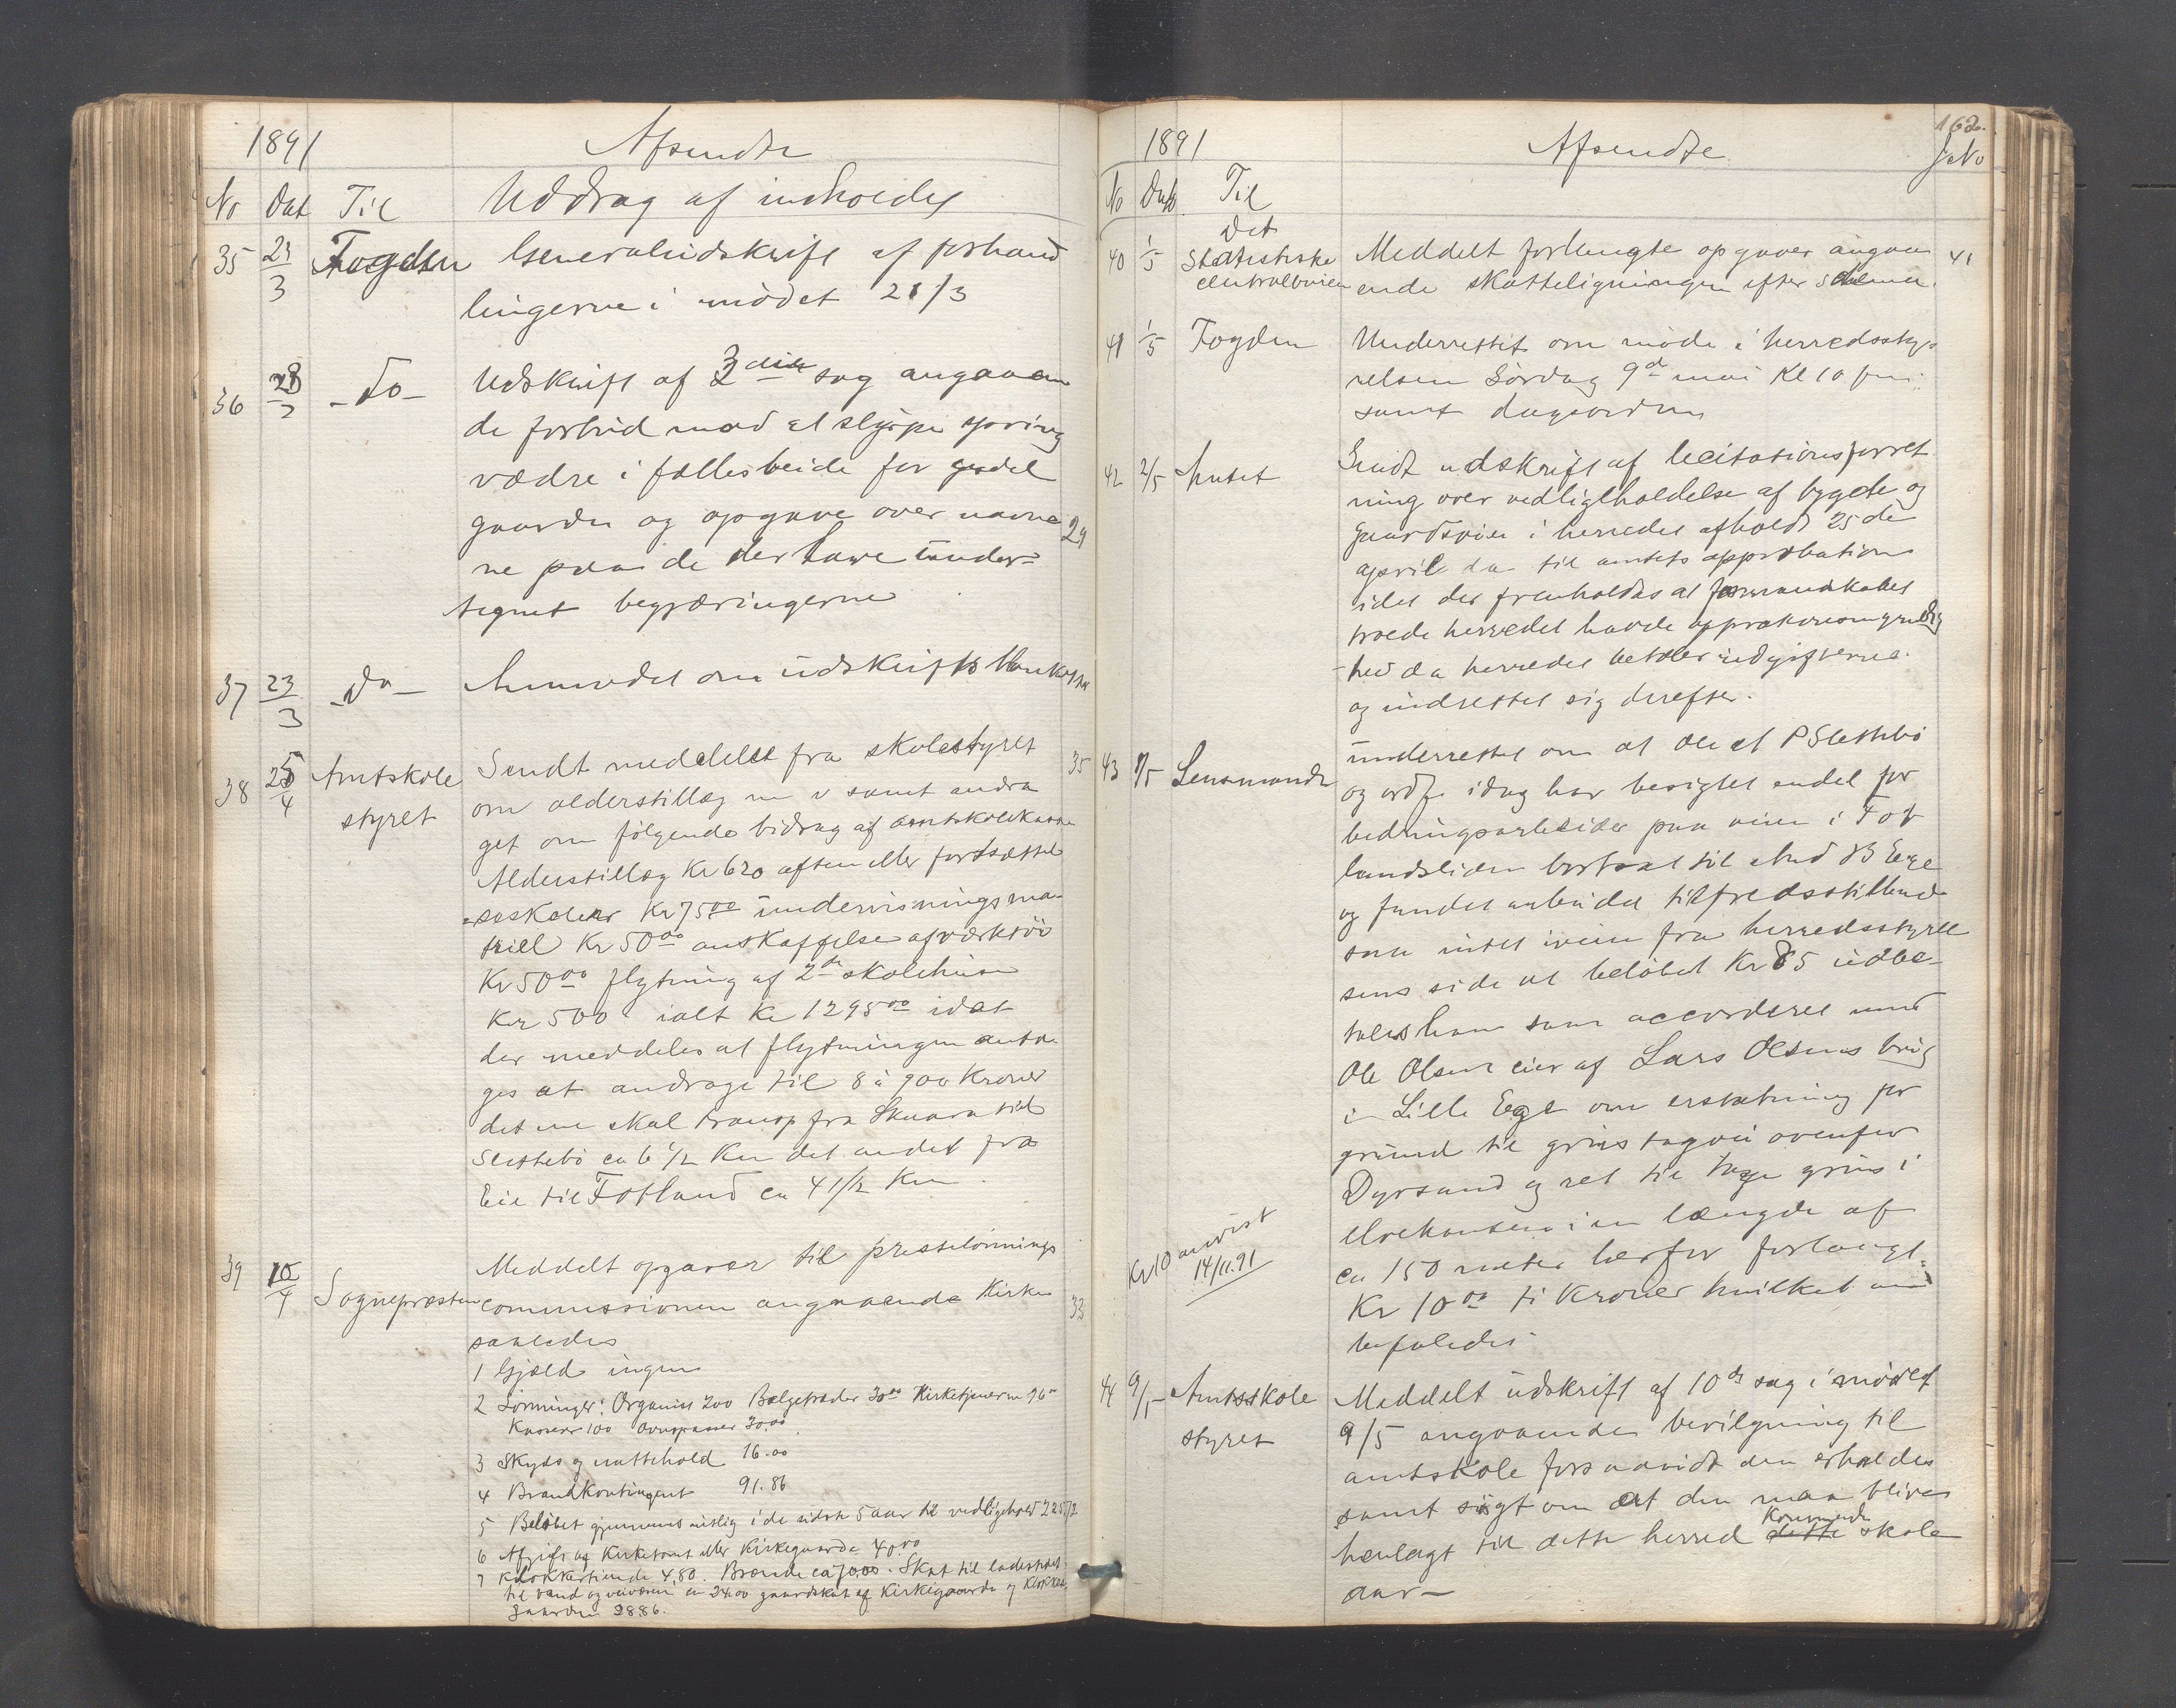 1891 Afsendte
No Dat Til Uddrag af indholdet
35 23/3 Fogden Generaludskrift af forhand
lingerne i mödet 21/3
36 23/3 - Do - Udskrift af 3die sag angaaen
de forbud mod at slippe spring
vædre i fællesbeide for endel
gaarder og opgave over navne 29
ne paa de der have under=
tegnet begjæringerne
37 23/3 - Do - Anmodet om udskrift
38 25/4 Amtskole Sendt meddelelse fra skolestyret 35
styret om alderstillæg m v samt andra
get om fölgende bidrag af amtskolekassen
Alderstillæg Kr 620 aften eller fortsættel
=sesskoler Kr 75 00 undervisningsma-
triell Kr 50 00 anskaffelse af værktöi
Kr 50 00 flytning af 2de skolehuse
Kr 500 ialt Kr 1295 00 idet
der meddeles at flytningen anta-
ges at andrage til 8 à 900 Kroner
det ene skal transp fra Skaara til
Slettebö ca 6 1/2 Km det andet fra
Eie til Fotland ca 4 1/2 Km.
39 10/4 Sognepresten Meddelt opgaver til prestelönnings
commissionen angaaende Kirken 33
saaledes
1 Gjæld ingen
2 Lönninger: Organist 200 Bælgetræder 30 00 Kirketjeneren 96 00
Kasserer 100 Ovnspasser 30.00
3 Skyds og nattehold 16.00
4 Brandkontingent 91.86
5 Belöbet gjennemsnitlig i de sidste 5 aar til vedligehold
6 Afgift af Kirketomt eller Kirkegaarde 40.00
7 Klokkertiende 4,80. Brænde ca 70.00. Skat til ladestedet
til vand og veivæsen ca 24.00 gaardskat af Kirkegaarde og Klokker
gaarden 28 86.
162.
1891 Afsendte JNo
No Dato Til
40 1/5 Det
Statistiske Meddelt forlangte opgaver angaa 41
centralbureau ende skatteligningen efter schema.
41 1/5 Fogden Underrettet om möde i herredssty-
relsen Lördag 9de mai Kl 10 fm.
samt dagsorden
42 2/5 Amtet Sendt udskrift af licitationsforret
ning over vedligeholdelse af bygde og
gaardsveie i herredet afholdt 25de
april da til amtets approbation
idet der fremholdes at formandskabet
troede herredet havde approbationsmyndig
hed da herredet betaler udgifterne.
og indrettet sig derefter.
43 7/5 Lensmanden underrettet om at Ole P Slettebö
og ordf. idag har besigtet endel for
bedringsarbeider paa veien i Fot
landslien bortsat til And B Eege
og fundet arbeidet tilfredsstillende
saa intet iveien fra herredsstyrel
sens side at belöbet Kr 85 udbe-
tales ham samt accorderet med
Ole Olsen eier af Lars Olsens brug
i Lille Eege om erstatning for
grund til grustagvei ovenfor
Dyrsand og ret til tage grus i
elvekanten i en længde af
Kr 10 anvist
14/11.91
ca 150 meter herfor forlangt
Kr 10 00 ti Kroner hvilket an
befaledes
44 9/5 Amtsskole Meddelt udskrift af 10de sag i mödet
styret 9/5 angaaende bevilgning til
amtskole forsaavidt den erholdes
samt sögt om at den maa blive
henlagt til dette herred dette kommende skole
aar -